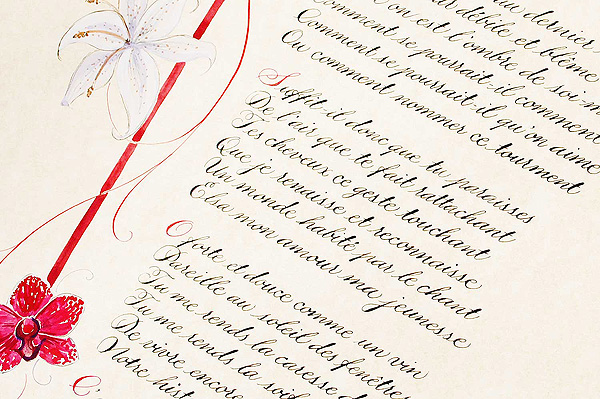 au dernier
débile et blême
l'on est l'ombre de soi-m
Comment se pourrait-il comment
Comment se pourrait-il qu'on aime
Ou comment nommer ce tourment
Suffit-il donc que tu paraisses
De l'air que te fait rattachant
Tes cheveux ce geste touchant
Que je renaisse et reconnaisse
Un monde habité par le chant
Elsa mon amour ma jeunesse
O forte et douce comme un vin
Pareille au soleil des fenêtres
Tu me rends la caresse d
Tu me rends la soif
De vivre encore
Notre hist
C'